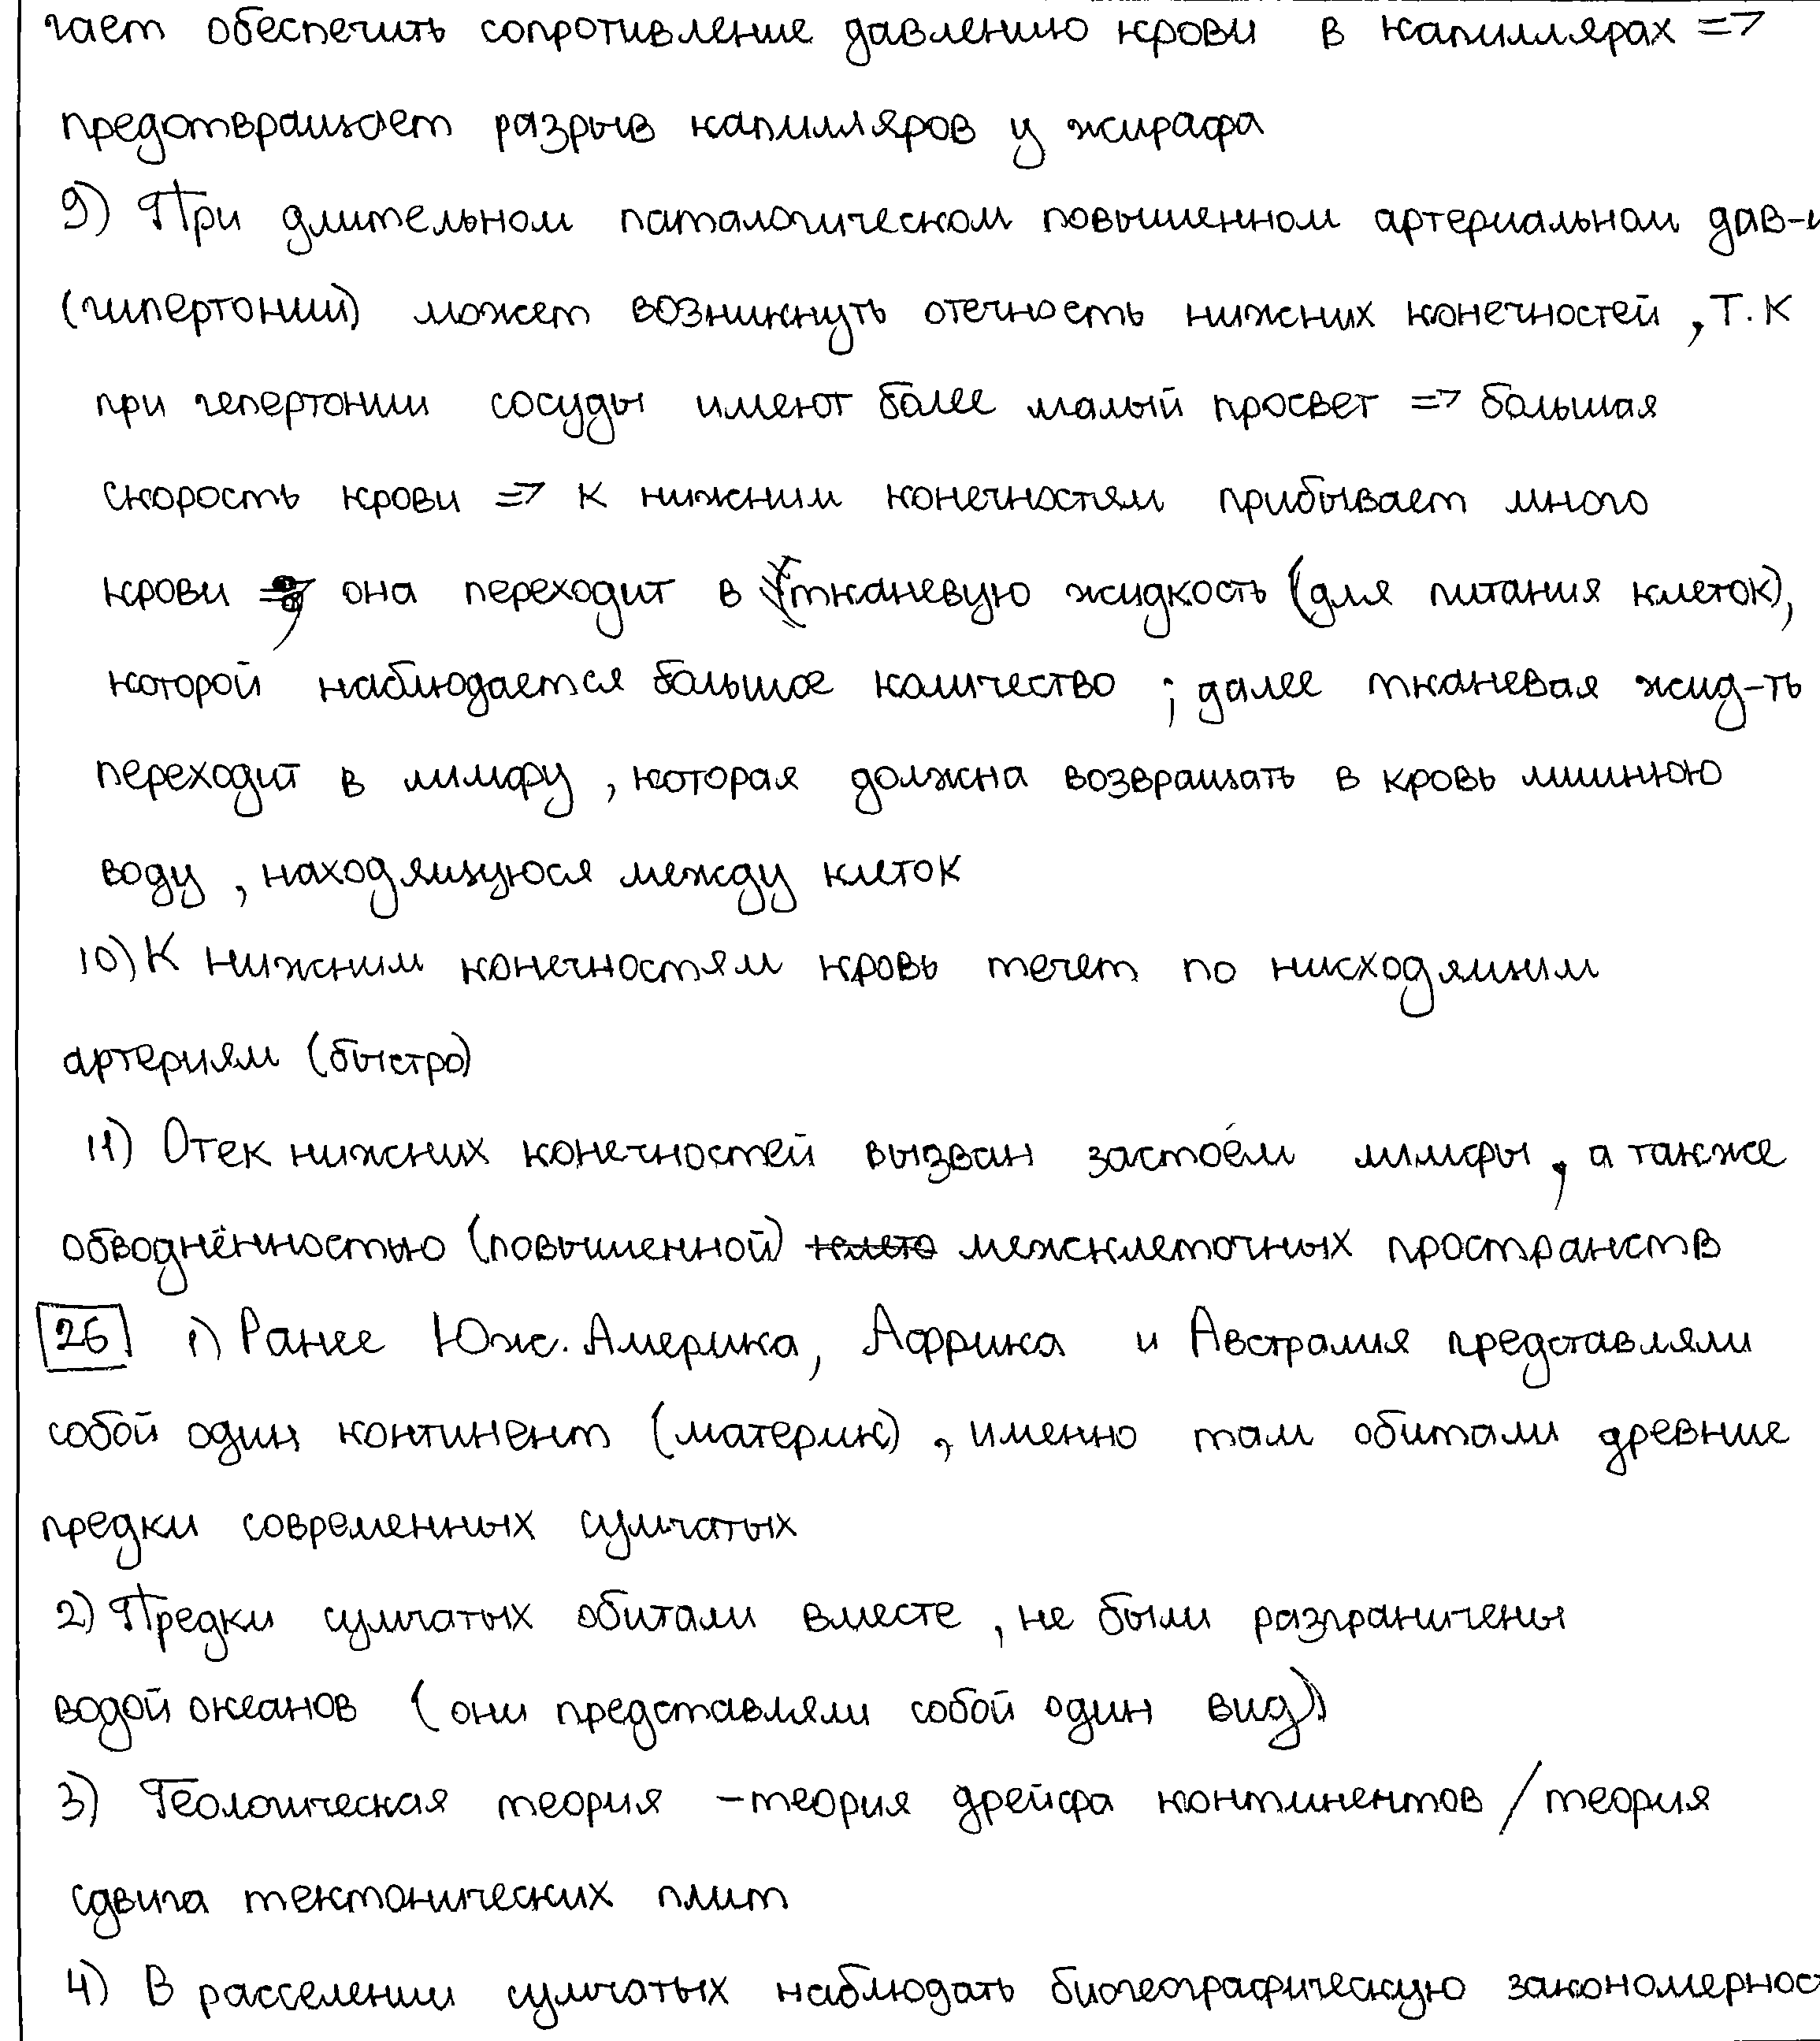 гает обеспечить сопротивление давлению крови в капиллярах =>
предотвращает разрыв капилляров у жирафа
9) При длительном паталогическом повышенном артериальном дав-и
(гипертонии) может возникнуть отечность нижних конечностей, т.к
при гепертонии сосуды имеют более малый просвет => большая
скорость крови => к нижним конечностям прибывает много
крови, она переходит в тканевую жидкость (для питания клеток),
которой наблюдается большое количество ; далее тканевая жид-ть
переходит в лимфу, которая должна возвращать в кровь лишнюю
воду, находящуюся между клеток
10) К нижним конечностям кровь течет по нисходящим
артериям (быстро)
11) Отек нижних конечностей вызван застоем лимфы, а также
обводнённостью (повышенной) межклеточных пространств
26 1) Ранее Юж. Америка, Африка и Австралия представляли
собой один континент (материк), именно там обитали древние
предки современных сумчатых
2) Предки сумчатых обитали вместе, не были разграничены
водой океанов (они представляли собой один вид)
3) Геологическая теория - теория дрейфа континентов / теория
сдвига тектонических плит
4) В расселении сумчатых наблюдать биогеографическую закономерност